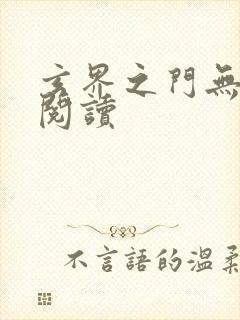 玄界之門無
閱讀
不言語的溫柔